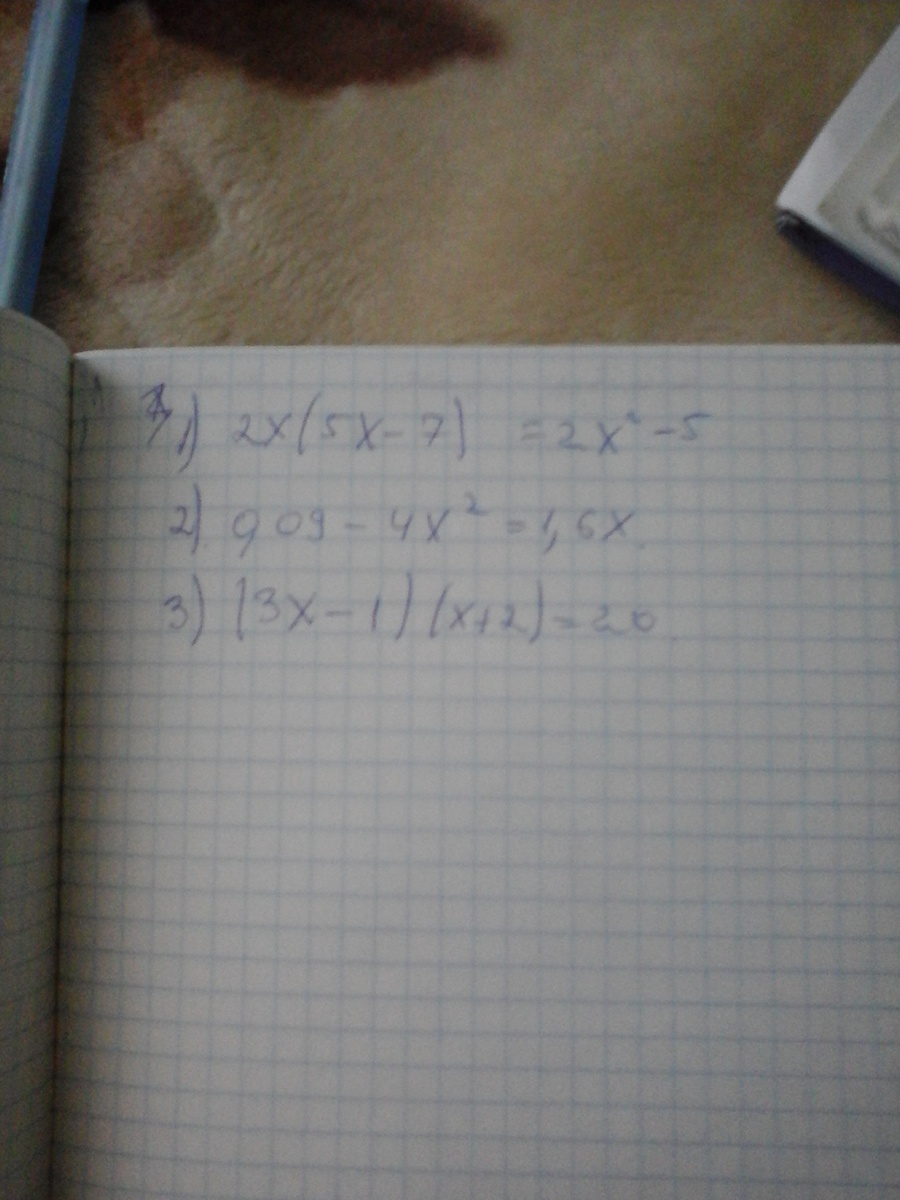 1) 2x(5x-7) = 2x²-5
2) 0,09 - 4x² = 1,6x
3) (3x-1)(x+2)=20